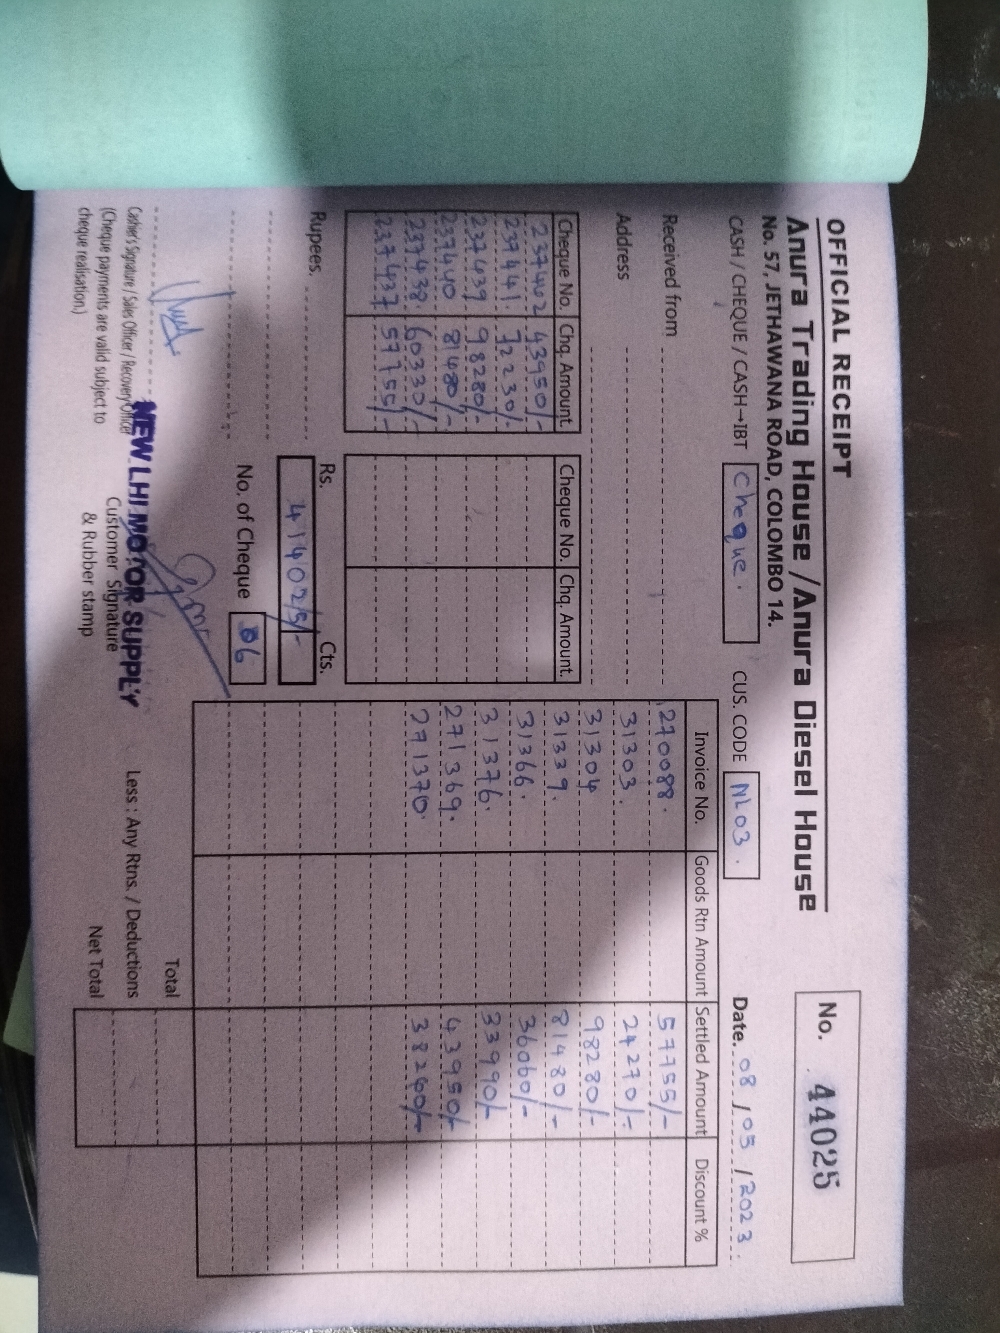 OFFICIAL RECEIPT
Anura Trading House / Anura Diesel House
No. 57, JETHAWANA ROAD, COLOMBO 14.
No. 44025
CASH / CHEQUE / CASH→IBT Cheque.
CUS. CODE NL03.
Date. 08 / 05 / 2023.
Received from
Address
Cheque No. Chq. Amount
237442 43950/-
237441 72230/-
237439 98280/-
237440 81480/-
237438 60330/-
237437 57755/-
Cheque No. Chq. Amount
Invoice No. Goods Rtn Amount Settled Amount Discount %
270088. 57755/-
31303. 24270/-
31304 98280/-
31339. 81480/-
31366. 36060/-
31376. 33990/-
271369. 43950/-
271370. 38240/-
Rupees.
Rs. Cts.
414025/-
No. of Cheque 06
Cashier's Signature / Sales Officer / Recovery Officer
(Cheque payments are valid subject to
cheque realisation.)
NEW LHI MOTOR SUPPLY
Customer Signature
& Rubber stamp
Total
Less : Any Rtns. / Deductions
Net Total